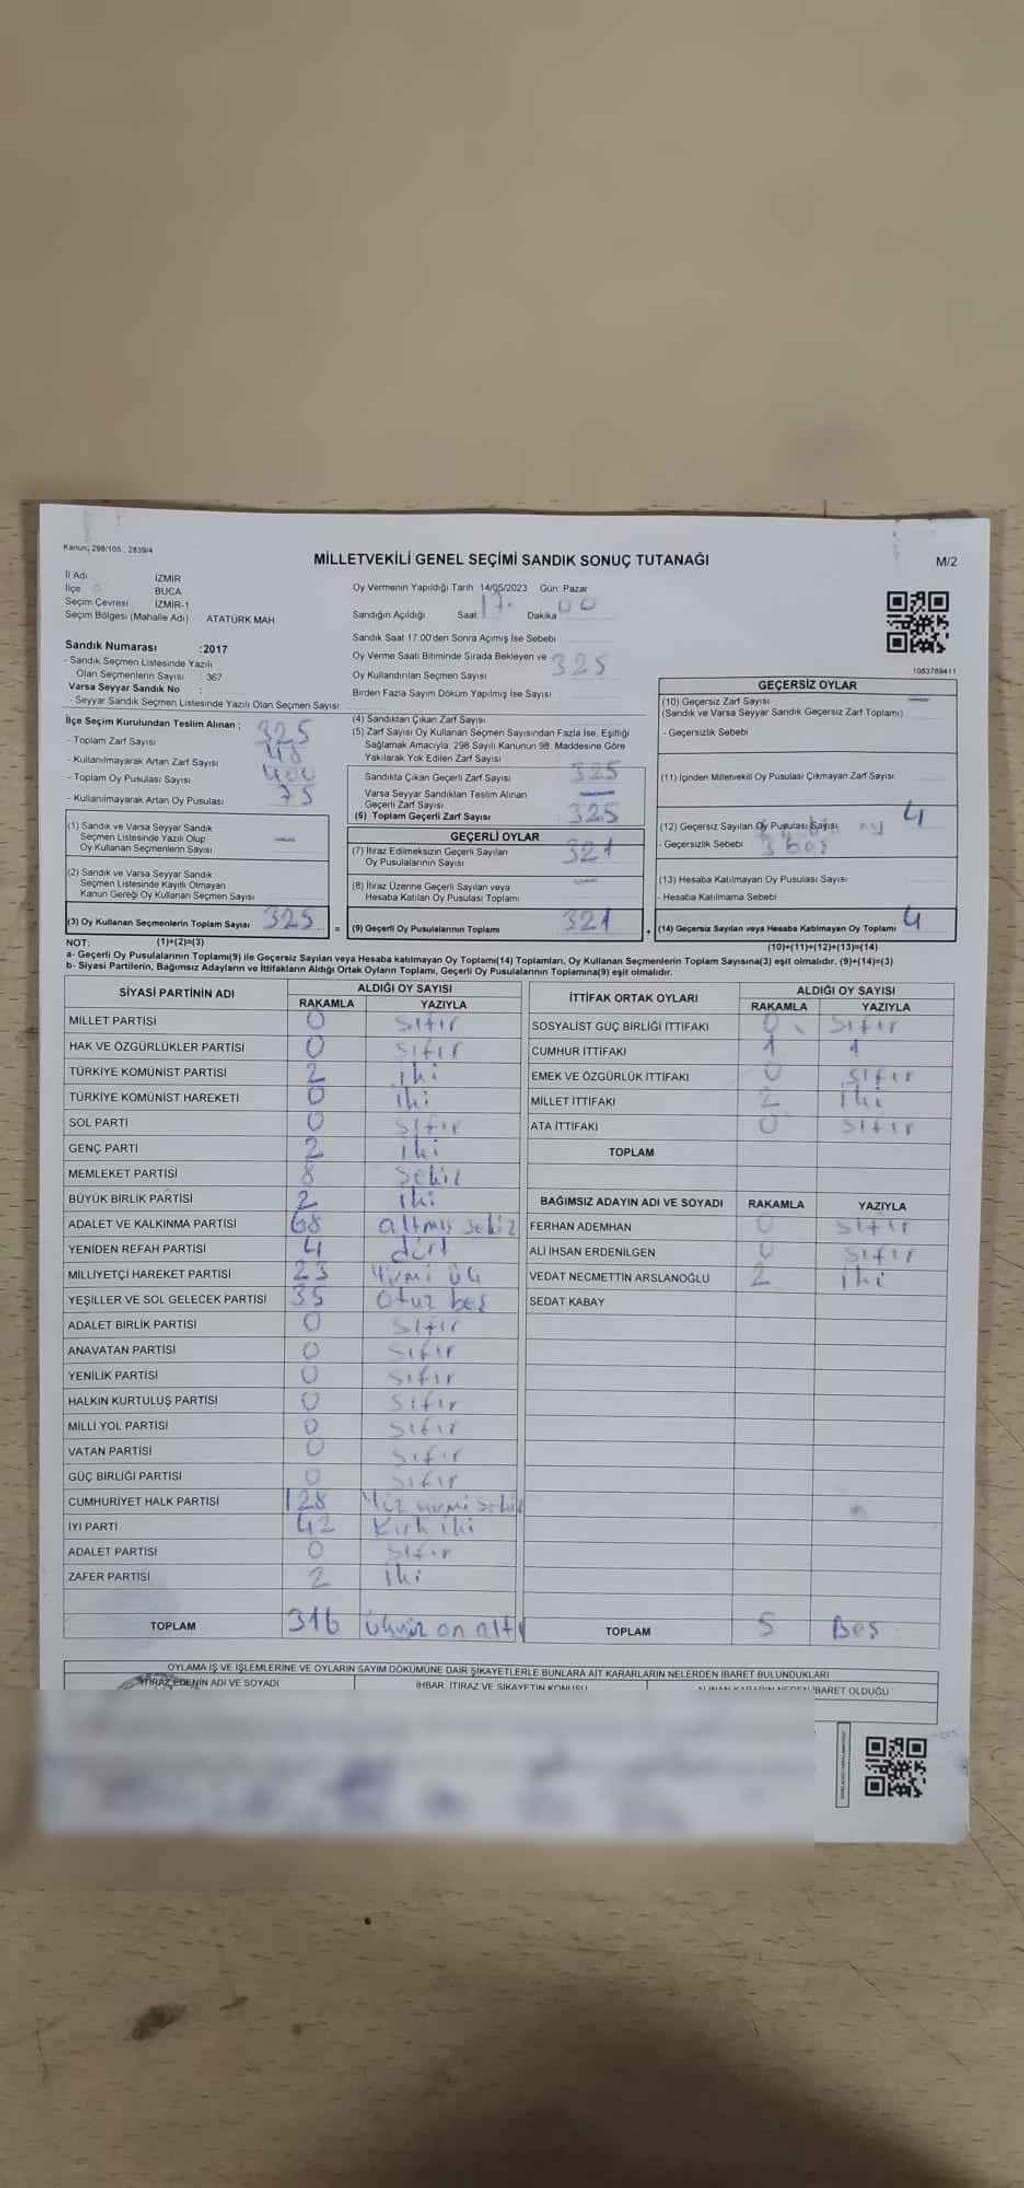 Kanun: 298/105 , 2839/4
MİLLETVEKİLİ GENEL SEÇİMİ SANDIK SONUÇ TUTANAĞI
M/2
İl Adı İZMİR
İlçe BUCA
Seçim Çevresi İZMİR-1
Seçim Bölgesi (Mahalle Adı) ATATÜRK MAH
Sandık Numarası :2017
- Sandık Seçmen Listesinde Yazılı
Olan Seçmenlerin Sayısı 367
Varsa Seyyar Sandık No :
- Seyyar Sandık Seçmen Listesinde Yazılı Olan Seçmen Sayısı
Oy Vermenin Yapıldığı Tarih 14/05/2023 Gün: Pazar
Sandığın Açıldığı Saat 17. Dakika 00
Sandık Saat 17.00'den Sonra Açımış İse Sebebi
Oy Verme Saati Bitiminde Sırada Bekleyen ve
Oy Kullandırılan Seçmen Sayısı 325
Birden Fazla Sayım Döküm Yapılmış İse Sayısı
1063769411
İlçe Seçim Kurulundan Teslim Alınan ;
- Toplam Zarf Sayısı 325
- Kullanılmayarak Artan Zarf Sayısı 48
- Toplam Oy Pusulası Sayısı 400
- Kullanılmayarak Artan Oy Pusulası 75
(1) Sandık ve Varsa Seyyar Sandık
Seçmen Listesinde Yazılı Olup
Oy Kullanan Seçmenlerin Sayısı —
(2) Sandık ve Varsa Seyyar Sandık
Seçmen Listesinde Kayıtlı Olmayan
Kanun Gereği Oy Kullanan Seçmen Sayısı
(3) Oy Kullanan Seçmenlerin Toplam Sayısı 325
(4) Sandıktan Çıkan Zarf Sayısı
(5) Zarf Sayısı Oy Kullanan Seçmen Sayısından Fazla İse, Eşitliği
Sağlamak Amacıyla, 298 Sayılı Kanunun 98. Maddesine Göre
Yakılarak Yok Edilen Zarf Sayısı
Sandıkta Çıkan Geçerli Zarf Sayısı 325
Varsa Seyyar Sandıktan Teslim Alınan
Geçerli Zarf Sayısı —
(6) Toplam Geçerli Zarf Sayısı 325
GEÇERLİ OYLAR
(7) İtiraz Edilmeksizin Geçerli Sayılan
Oy Pusulalarının Sayısı 321
(8) İtiraz Üzerine Geçerli Sayılan veya
Hesaba Katılan Oy Pusulası Toplamı —
= (9) Geçerli Oy Pusulalarının Toplamı 321
GEÇERSİZ OYLAR
(10) Geçersiz Zarf Sayısı —
(Sandık ve Varsa Seyyar Sandık Geçersiz Zarf Toplamı)
- Geçersizlik Sebebi
(11) İçinden Milletvekili Oy Pusulası Çıkmayan Zarf Sayısı
(12) Geçersiz Sayılan Oy Pusulası Sayısı 4
- Geçersizlik Sebebi
(13) Hesaba Katılmayan Oy Pusulası Sayısı
- Hesaba Katılmama Sebebi
+ (14) Geçersiz Sayılan veya Hesaba Katılmayan Oy Toplamı 4
NOT: (1)+(2)=(3)
(10)+(11)+(12)+(13)=(14)
a- Geçerli Oy Pusulalarının Toplamı(9) ile Geçersiz Sayılan veya Hesaba katılmayan Oy Toplamı(14) Toplamları, Oy Kullanan Seçmenlerin Toplam Sayısına(3) eşit olmalıdır. (9)+(14)=(3)
b- Siyasi Partilerin, Bağımsız Adayların ve İttifakların Aldığı Ortak Oyların Toplamı, Geçerli Oy Pusulalarının Toplamına(9) eşit olmalıdır.
SİYASİ PARTİNİN ADI ALDIĞI OY SAYISI
RAKAMLA YAZIYLA
MİLLET PARTİSİ 0 sıfır
HAK VE ÖZGÜRLÜKLER PARTİSİ 0 sıfır
TÜRKİYE KOMÜNİST PARTİSİ 2 iki
TÜRKİYE KOMÜNİST HAREKETİ 0 iki
SOL PARTİ 0 sıfır
GENÇ PARTİ 2 iki
MEMLEKET PARTİSİ 8 sekiz
BÜYÜK BİRLİK PARTİSİ 2 iki
ADALET VE KALKINMA PARTİSİ 68 altmış sekiz
YENİDEN REFAH PARTİSİ 4 dört
MİLLİYETÇİ HAREKET PARTİSİ 23 yirmi üç
YEŞİLLER VE SOL GELECEK PARTİSİ 35 otuz beş
ADALET BİRLİK PARTİSİ 0 sıfır
ANAVATAN PARTİSİ 0 sıfır
YENİLİK PARTİSİ 0 sıfır
HALKIN KURTULUŞ PARTİSİ 0 sıfır
MİLLİ YOL PARTİSİ 0 sıfır
VATAN PARTİSİ 0 sıfır
GÜÇ BİRLİĞİ PARTİSİ 0 sıfır
CUMHURİYET HALK PARTİSİ 128 Yüz yirmi sekiz
İYİ PARTİ 42 kırk iki
ADALET PARTİSİ 0 sıfır
ZAFER PARTİSİ 2 iki
TOPLAM 316 üçyüz on altı
İTTİFAK ORTAK OYLARI ALDIĞI OY SAYISI
RAKAMLA YAZIYLA
SOSYALİST GÜÇ BİRLİĞİ İTTİFAKI 0 sıfır
CUMHUR İTTİFAKI 1 1
EMEK VE ÖZGÜRLÜK İTTİFAKI 0 sıfır
MİLLET İTTİFAKI 2 iki
ATA İTTİFAKI 0 sıfır
TOPLAM
BAĞIMSIZ ADAYIN ADI VE SOYADI RAKAMLA YAZIYLA
FERHAN ADEMHAN 0 sıfır
ALİ İHSAN ERDENİLGEN 0 sıfır
VEDAT NECMETTİN ARSLANOĞLU 2 iki
SEDAT KABAY
TOPLAM 5 Beş
OYLAMA İŞ VE İŞLEMLERİNE VE OYLARIN SAYIM DÖKÜMÜNE DAİR ŞİKAYETLERLE BUNLARA AİT KARARLARIN NELERDEN İBARET BULUNDUKLARI
İTİRAZ EDENİN ADI VE SOYADI
İHBAR, İTİRAZ VE ŞİKAYETİN KONUSU
ALINAN KARARIN NEDEN İBARET OLDUĞU